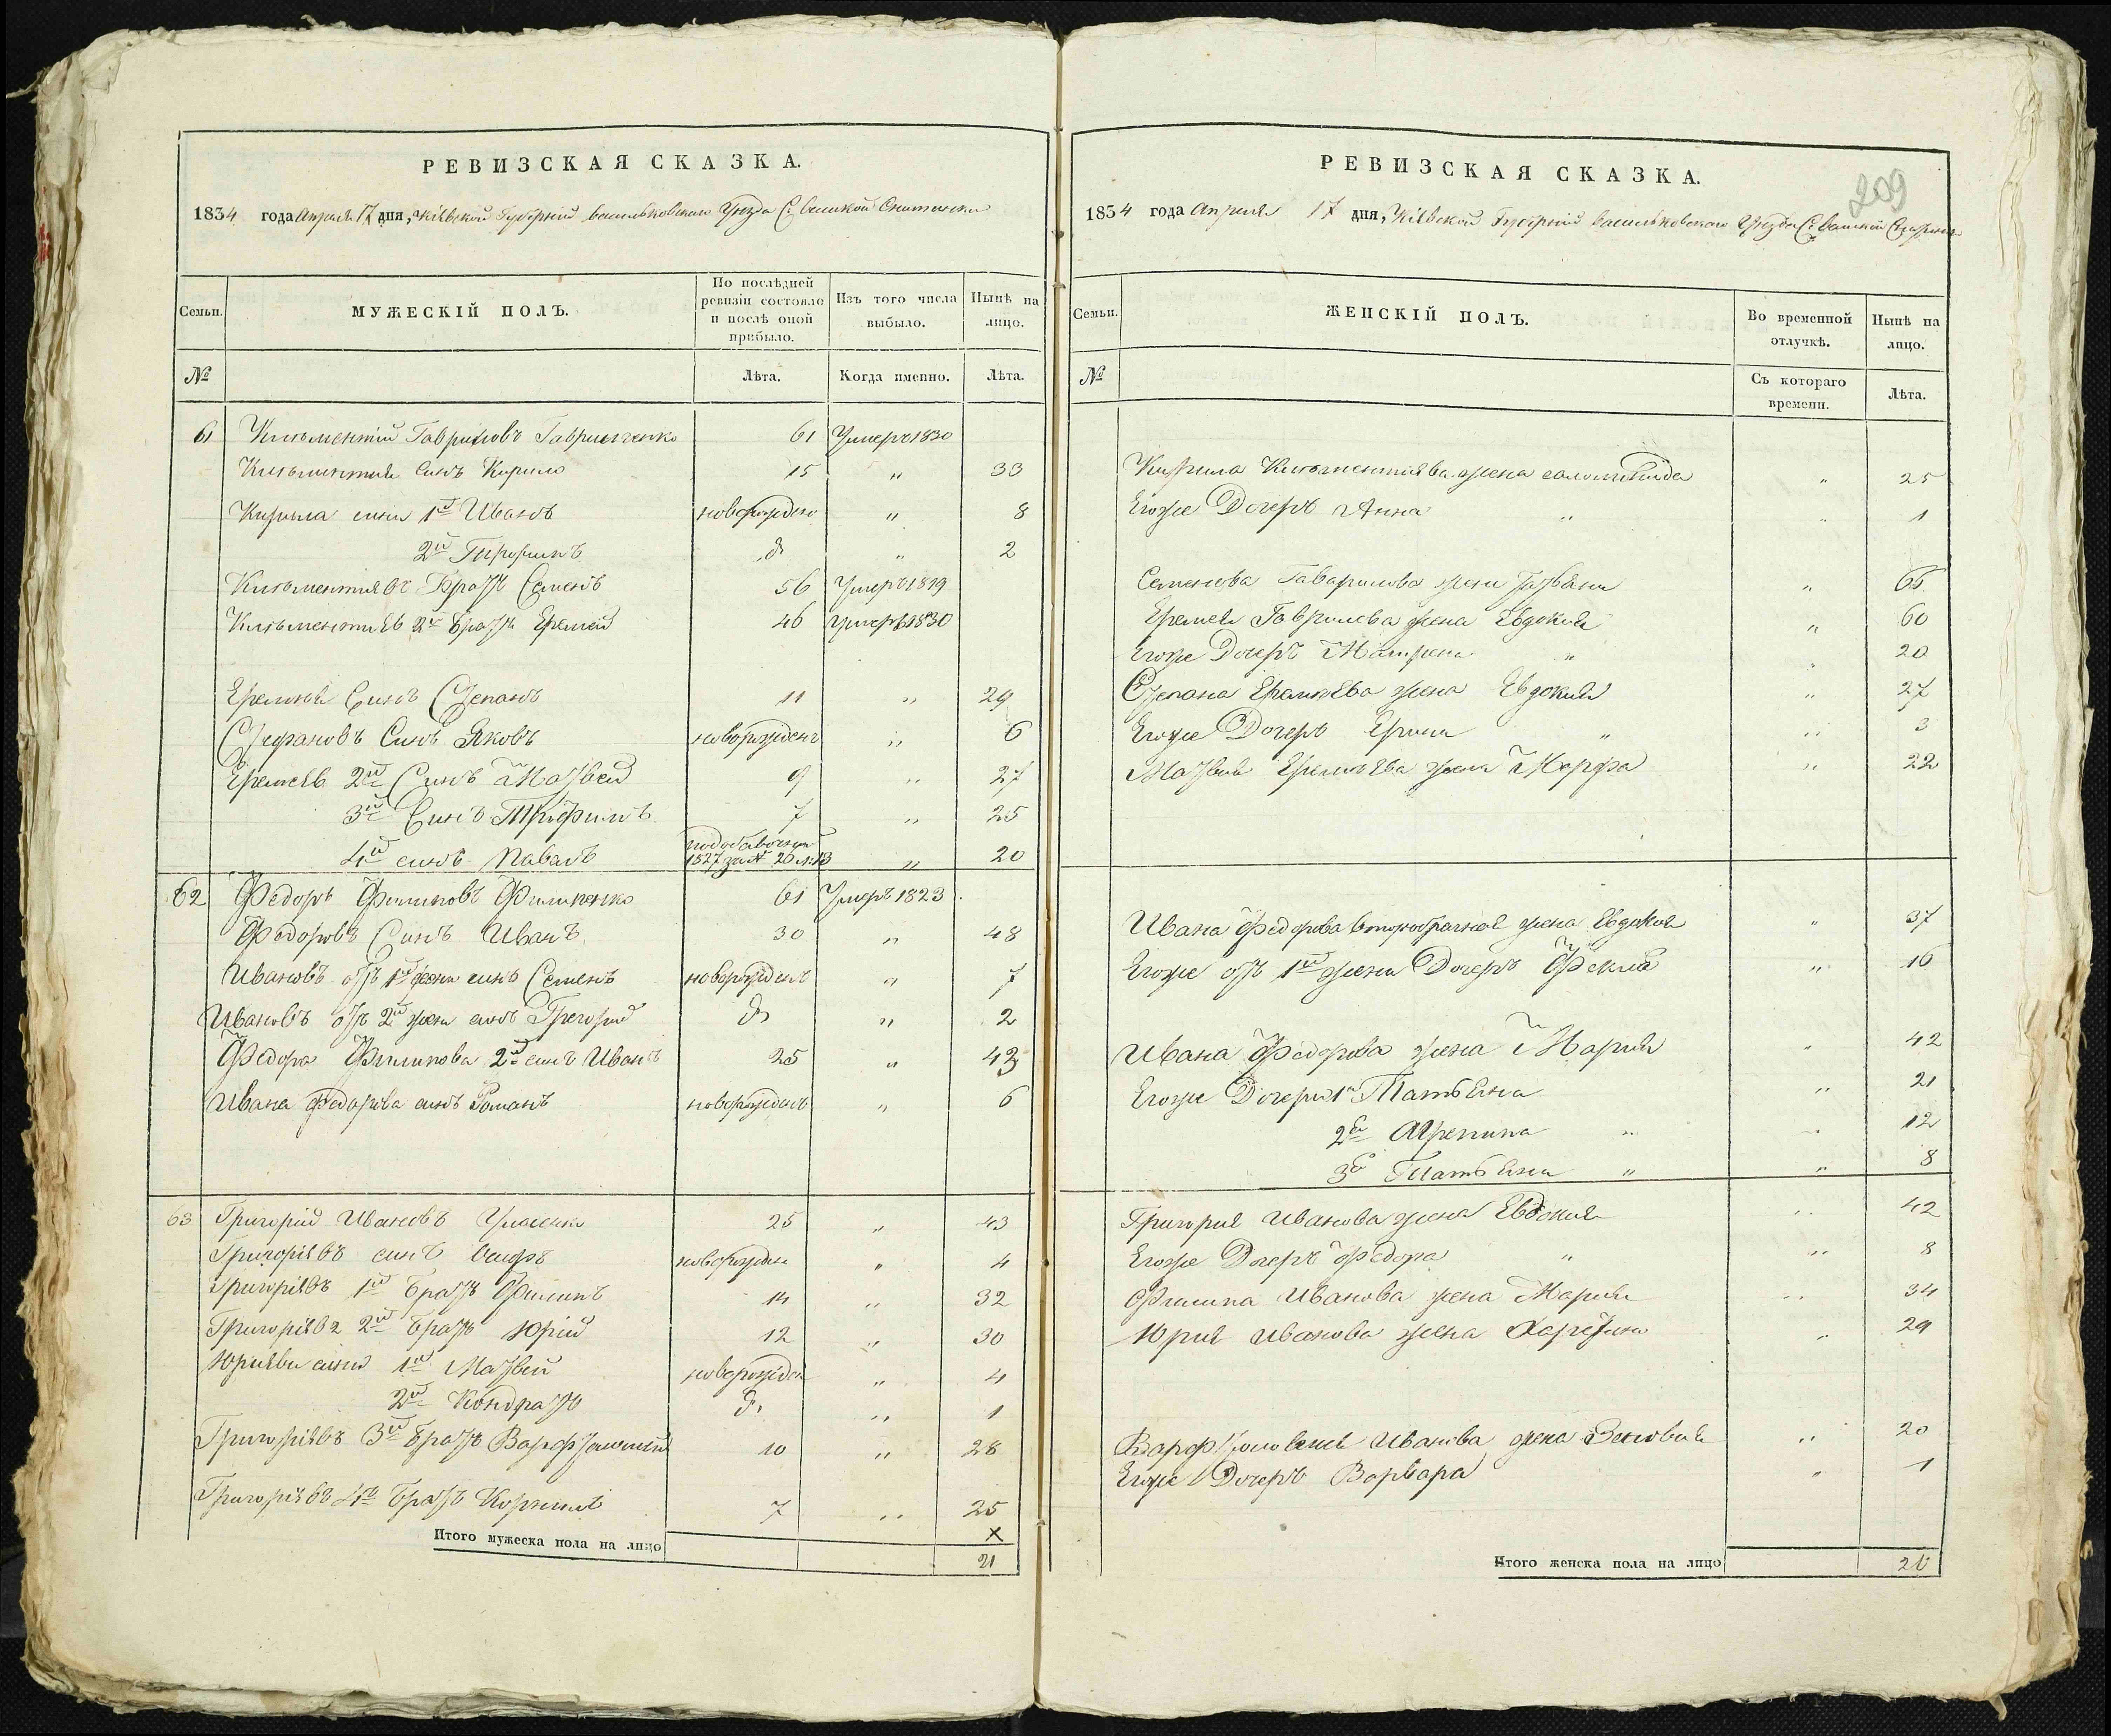 РЕВИЗСКАЯ СКАЗКА.
1834 года Апреля 17 дня, Кіевской Губерніи Васильковского Уезда С: Великой
Семьи.
МУЖЕСКІЙ ПОЛЪ.
По послѣдней ревизіи состояло и послѣ оной прибыло.
Изъ того числа выбыло.
Нынѣ на лицо.
№
Лѣта.
Когда именно.
Лѣта.
61 Климентий Гавриловъ Гавриленко 61 Умеръ 1830
Климентия Сынъ Кирило 15 " 33
Кирила сыны 1й Иванъ новорожден " 8
2й д. " 2
Климентиевъ Братъ Семенъ 56 Умеръ 1819
Климентиевъ 2й Братъ Еремей 46 Умеръ 1830
Еремеея Сынъ Степанъ 11 " 29
Стефановъ Сынъ Яковъ новорожденъ " 6
Еремеевъ 2й Сынъ Матвей 9 " 27
3й Сынъ Трофимъ 7 " 25
4й сынъ Павелъ 1827 за № 20 13 " 20
62 Федоръ Филиповъ Филипенко 61 Умеръ 1823.
Федоровъ Сынъ Иванъ 30 " 48
Ивановъ отъ 1й жены сынъ Семенъ новорожденъ " 7
Ивановъ отъ 2й жены сынъ Грегорий д. " 2
Федора Филипова 2й сынъ Иванъ 25 " 43
Ивана Федорова сынъ Романъ новорожденъ " 6
63 Григорий Ивановъ 25 " 43
Григориевъ сынъ новорожден " 4
Григориевъ 1й Братъ Филипъ 14 " 32
Григориевъ 2й Братъ Юрий 12 " 30
Юриевы сыны 1й Матвей новорожден " 4
2й Кондратъ д. " 1
Григориевъ 3й Братъ Варфоломей 10 " 28
Григориевъ 4й Братъ Корнило 7 " 25
X
Итого мужеска пола на лицо 21
209
РЕВИЗСКАЯ СКАЗКА.
1834 года Апреля 17 дня, Кіевской Губерніи Васильковского Уезда С: Великой
Семьи.
ЖЕНСКІЙ ПОЛЪ.
Во временной отлучкѣ.
Нынѣ на лицо.
№
Съ котораго времени.
Лѣта.
Кирила Климентиева жена " 25
Егоже Дочерь Анна " " 1
Семенова Гаврилова жена Татьяна "
Еремея Гаврилева жена Евдокия " 60
Егоже Дочерь Матрена " " 20
Степана Еремеева жена Евдокия " 27
Егоже Дочерь Ерина " " 3
Матвея Еремеева жена Марфа " 22
Ивана Федорова второбрачная жена Евдокия " 37
Егоже отъ 1й жены Дочерь Фекла " 16
Ивана Федорова жена Мария " 42
Егоже Дочери 1я Татьяна " 21
2я Агрепина " " 12
3я Татьяна " " 8
Григория Иванова жена Евдокия " 42
Егоже Дочерь Федора " " 8
Филипа Иванова жена Мария " 34
Юрия Иванова жена Харетина " 29
Варфоломея Иванова жена Зеновия " 20
Егоже Дочерь Варвара " 1
Итого женска пола на лицо 20